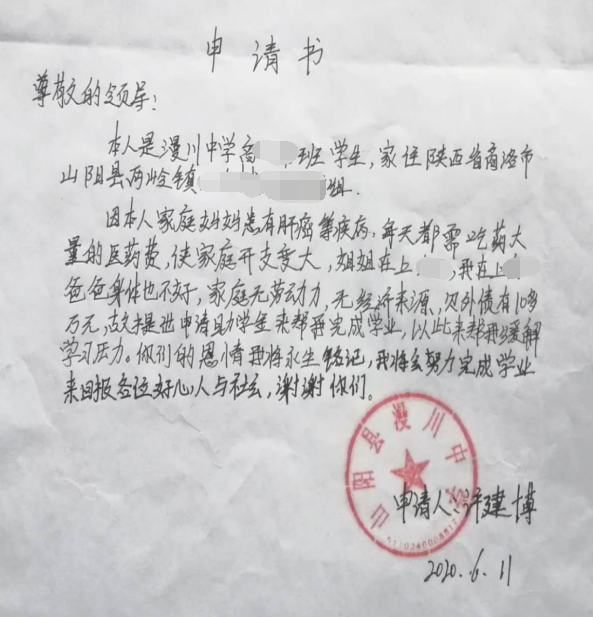 申请书
尊敬的领导：
本人是漫川中学高 班学生，家住陕西省商洛市
山阳县两岭镇 组．
因本人家庭妈妈患有肝癌等疾病，每天都需吃药大
量的医药费，使家庭开支变大，姐姐在上 ，我在上
爸爸身体也不好，家庭无劳动力，无经济来源，欠外债有10多
万元，故提出申请助学金来帮我完成学业，以此来帮我缓解
学习压力。你们的恩情我将永生铭记，我将会努力完成学业
来回报各位好心人与社会，谢谢你们。
山阳县漫川中学
申请人：许建博
2020.6.11